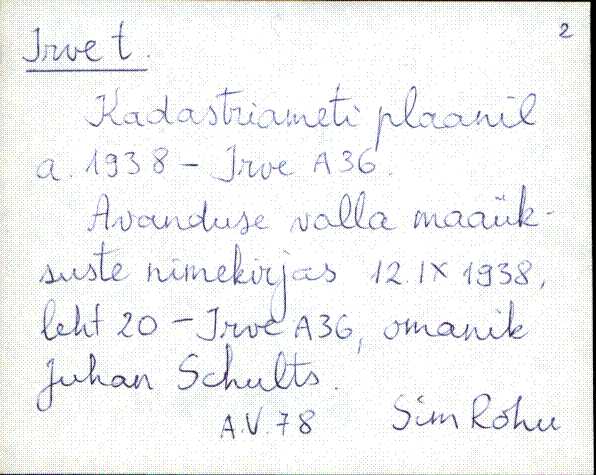 2
Irve t.
Kadastriameti plaanil
a. 1938 – Irve A36.
Avanduse valla maaük-
suste nimekirjas 12.IX 1938,
leht 20 – Irve A36, omanik
Juhan Schults.
A.V.78 Sim Rohu